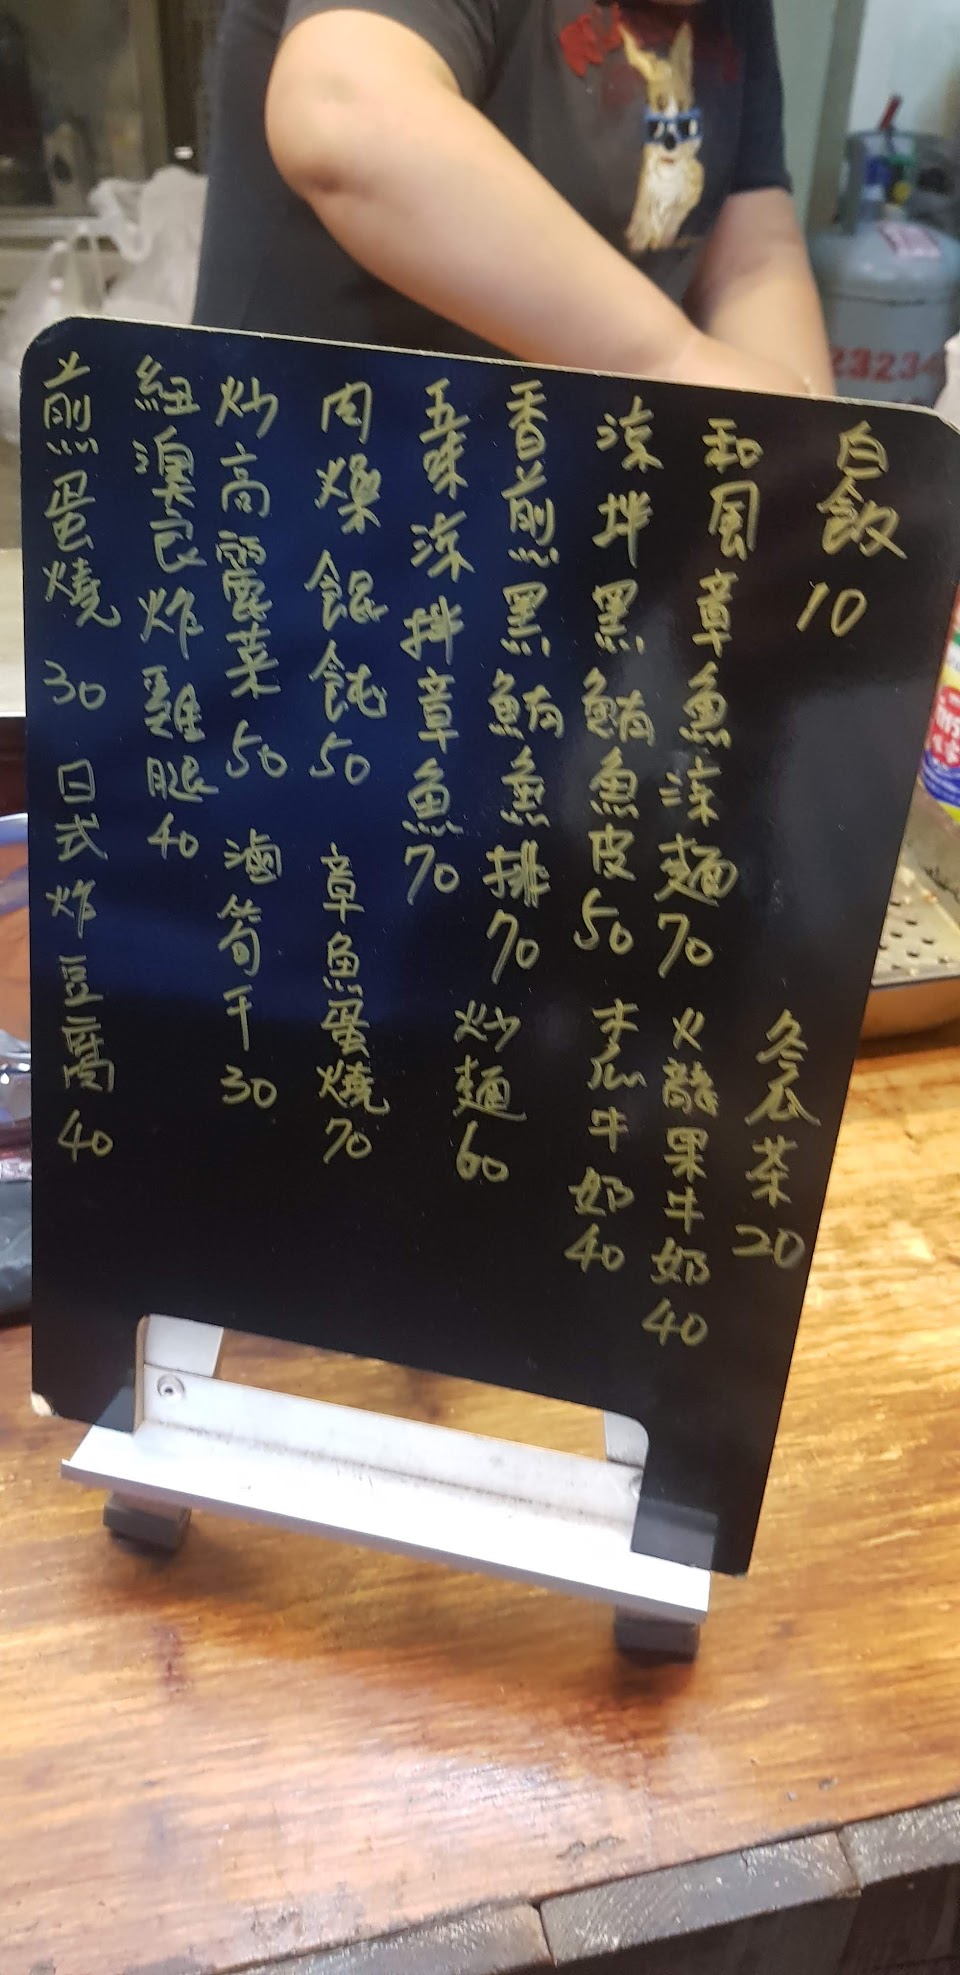 白飯 10
冬瓜茶 20
和風章魚涼麵 70
火龍果牛奶 40
涼拌黑鮪魚皮 50
木瓜牛奶 40
香煎黑鮪魚排 70
炒麵 60
五味涼拌章魚 70
肉燥餛飩 50
章魚蛋燒 70
炒高麗菜 50
滷筍干 30
紐澳良炸雞腿 40
煎蛋燒 30
日式炸豆腐 40
23234